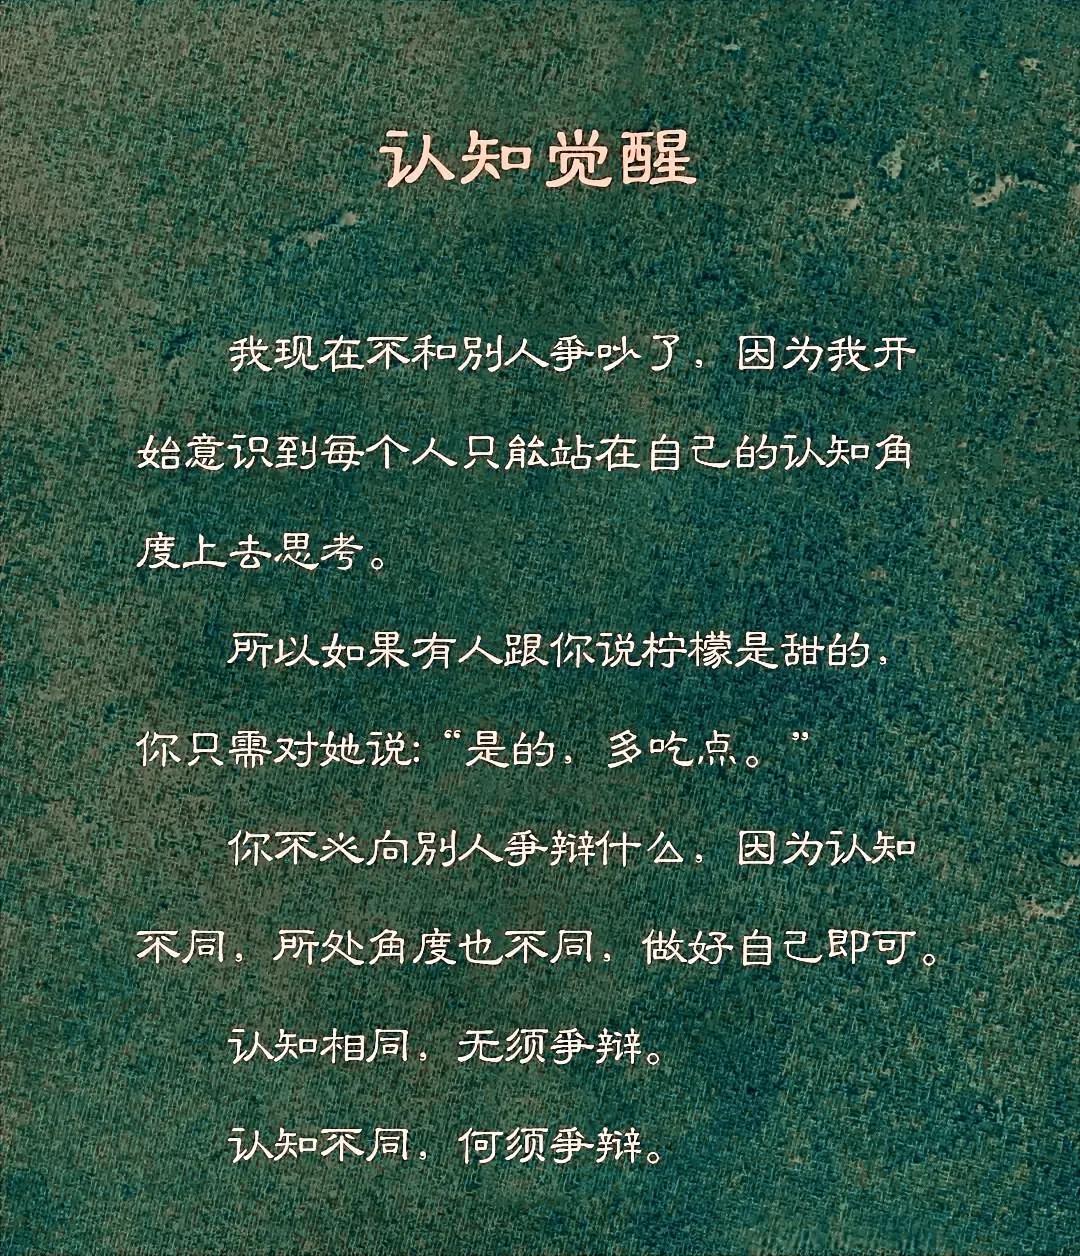 认知觉醒
我现在不和别人争吵了，因为我开
始意识到每个人只能站在自己的认知角
度上去思考。
所以如果有人跟你说柠檬是甜的，
你只需对她说:“是的，多吃点。”
你不必向别人争辩什么，因为认知
不同，所处角度也不同，做好自己即可。
认知相同，无须争辩。
认知不同，何须争辩。